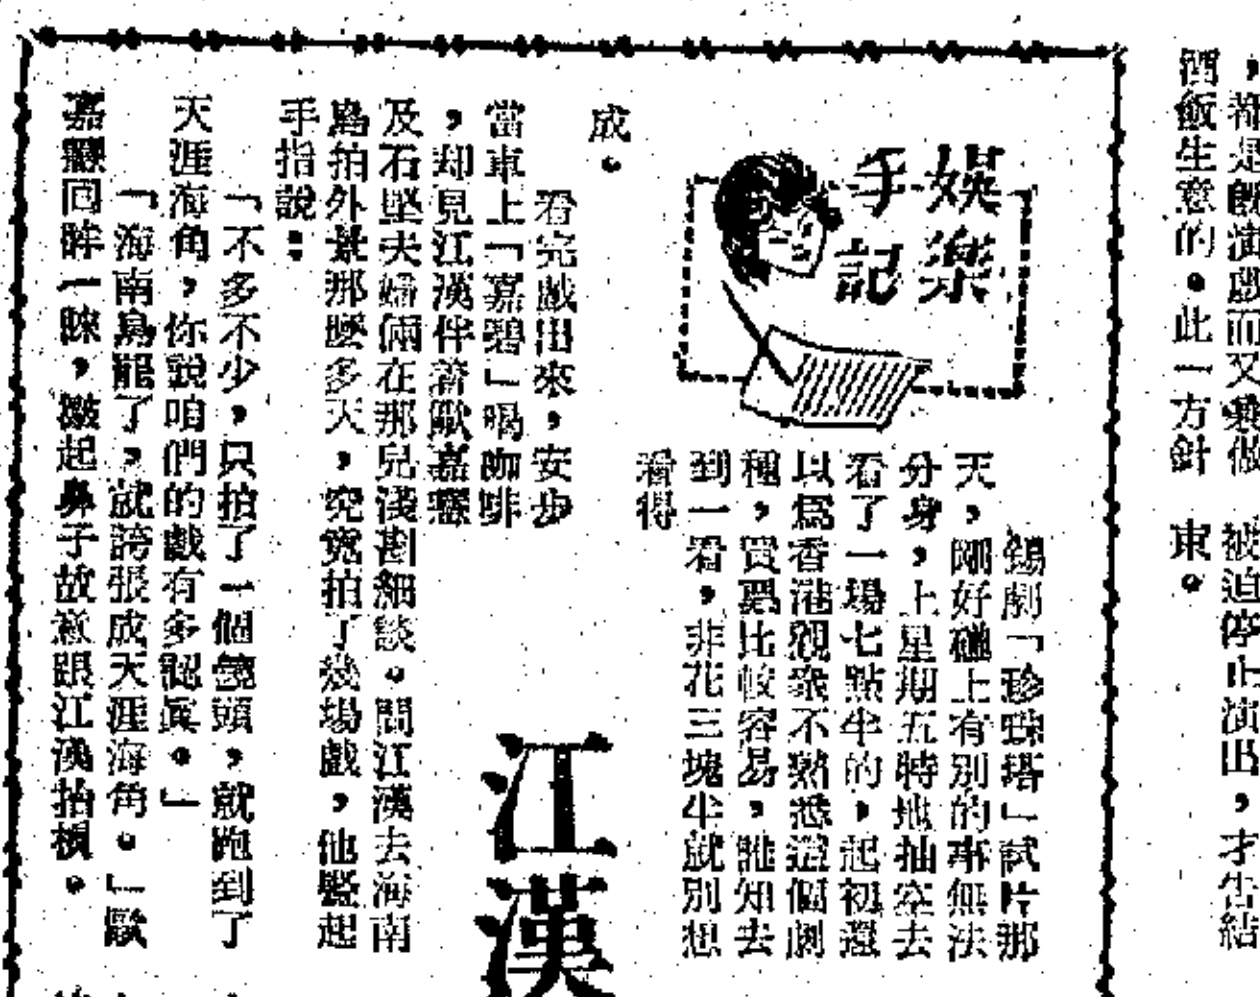 ，都是既演戲而又兼做
酒飯生意的。此一方針
被迫停止演出，才告結
東。
娛樂
手記
錫劇「珍珠塔」試片那
天，剛好碰上有別的事無法
分身，上星期五特地抽空去
看了一場七點半的，起初還
以爲香港觀衆不熟悉這個劇
種，買票比較容易，誰知去
到一看，非花三塊半就別想
看得
成。
江漢
看完戲出來，安步
當車上「嘉碧」喝咖啡
，却見江漢伴着歐嘉慧
及石堅夫婦倆在那兒淺斟細談。問江漢去海南
島拍外景那麼多天，究竟拍了幾場戲，他豎起
手指說：
「不多不少，只拍了一個鏡頭，就跑到了
天涯海角，你說咱們的戲有多認眞。」
「海南島罷了，就誇張成天涯海角。」歐
嘉慧回眸一睞，皺起鼻子故意跟江漢抬槓。